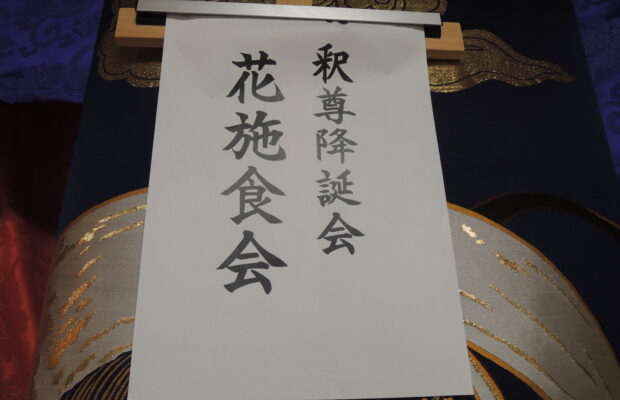 釈尊降誕会
花施食会